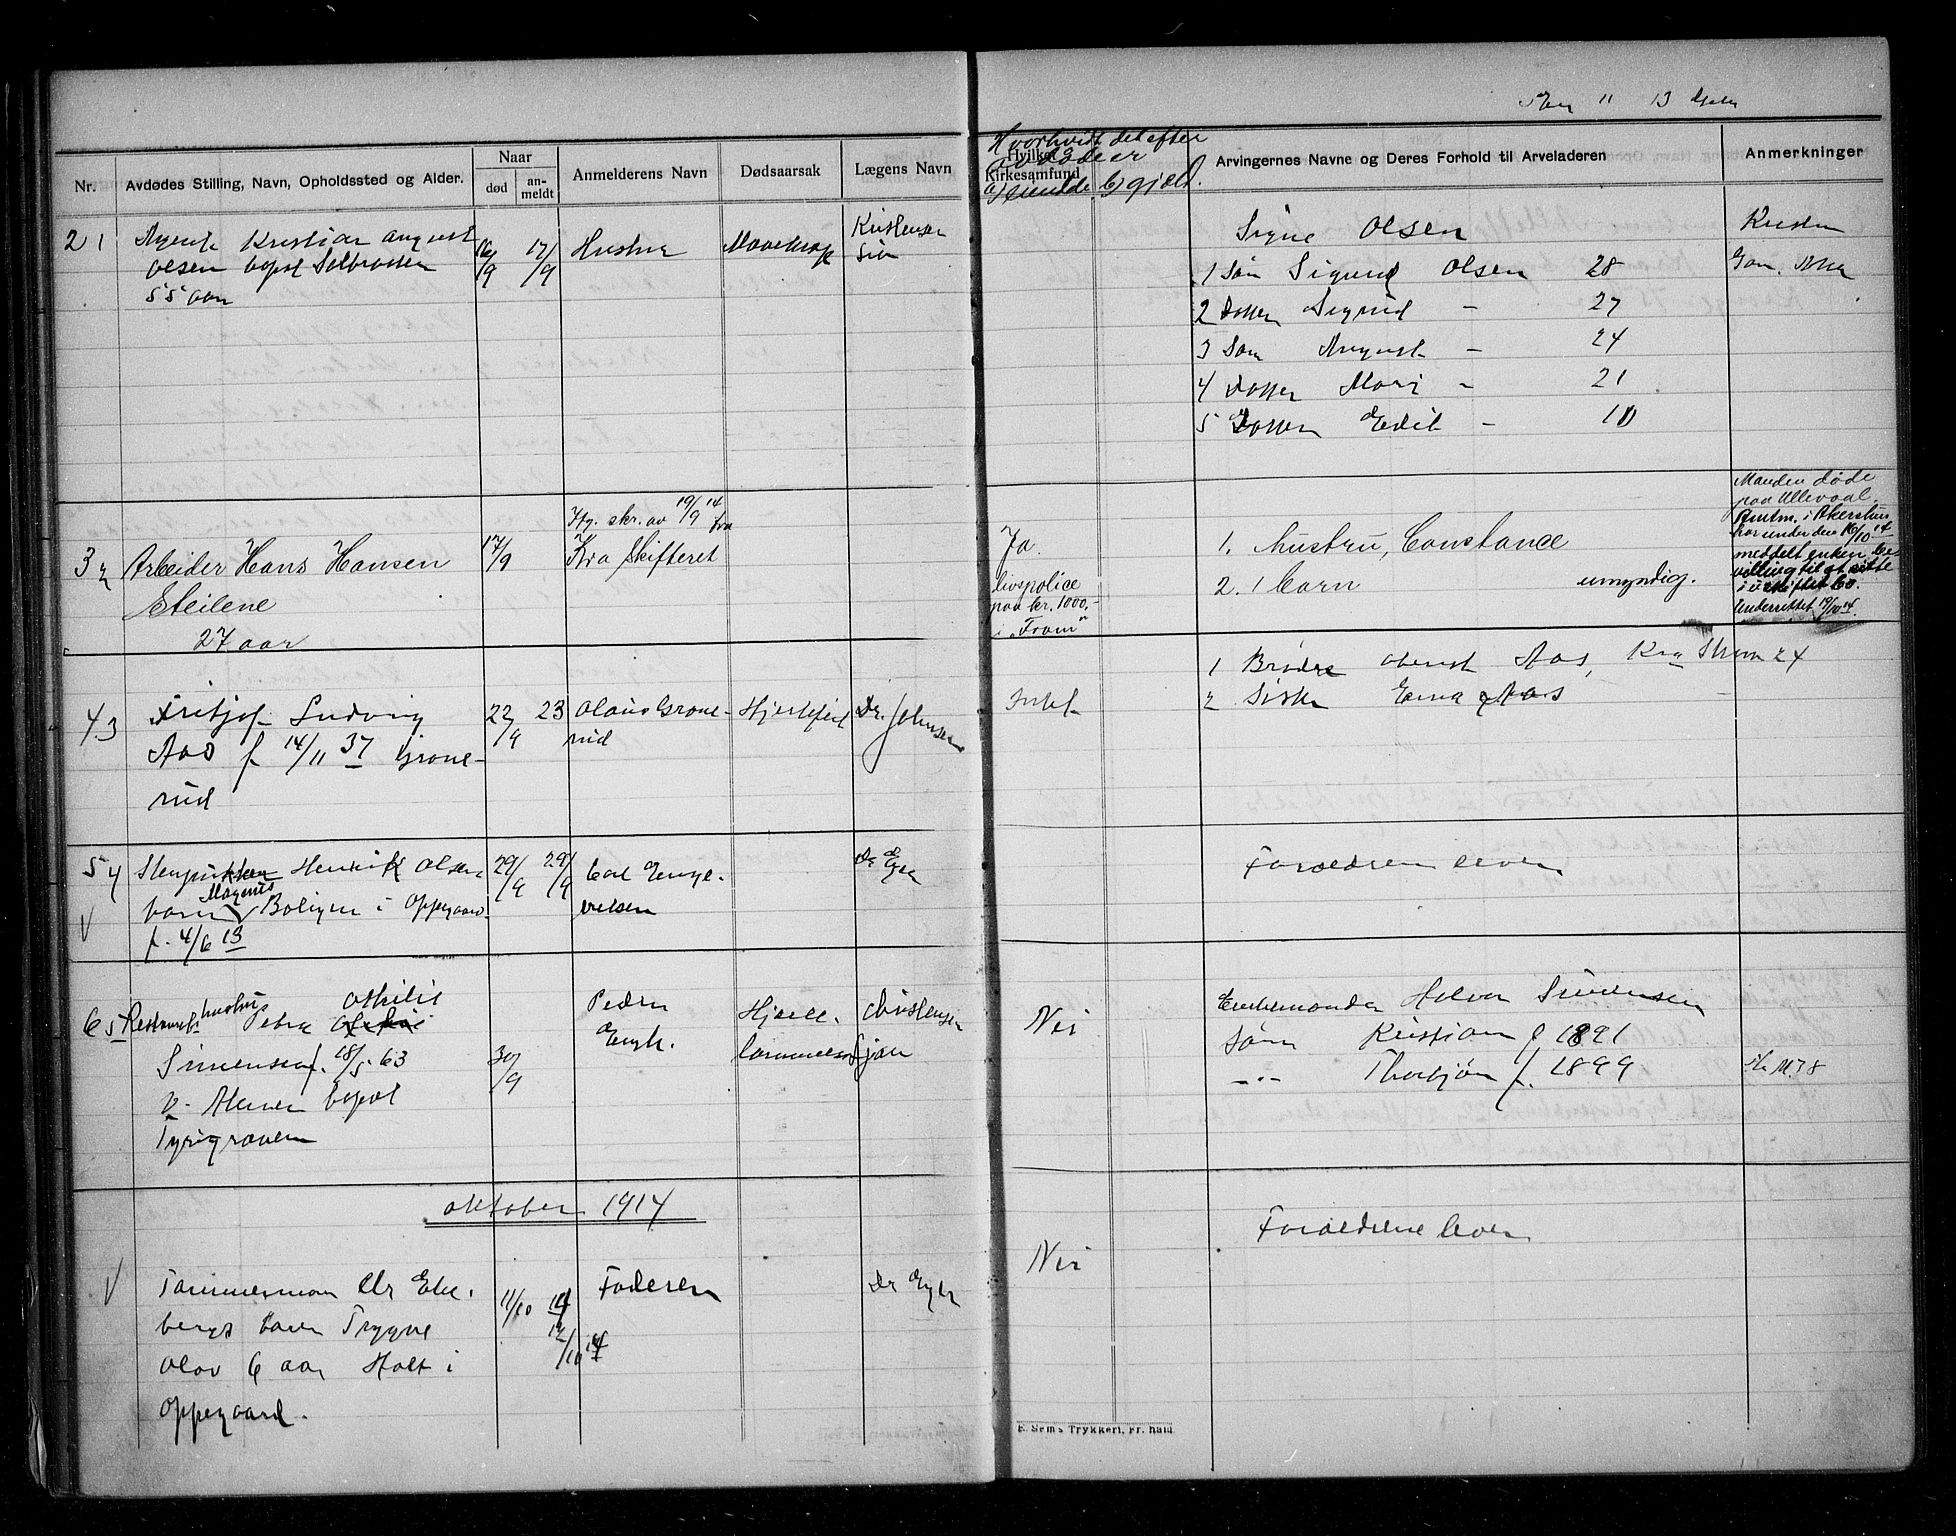 11 13
Hvorhvidt det efter
Nr.
Avdødes Stilling, Navn, Opholdssted og Alder.
Naar
død
an-
meldt
Anmelderens Navn
Dødsaarsak
Lægens Navn
Hvilket
Kirkesamfund
b) gjæld.
Arvingernes Navne og Deres Forhold til Arveladeren
Anmerkninger
2 1
Agent Kristian August
Olsen bopæl Solbraaten
55 aar
16/9
17/9
Hustru
Mavekræft
Kristensen
Signe Olsen
1 Søn Sigurd Olsen 28
2 Datter Sigrid - 27
3 Søn August - 24
4 Datter Mary - 21
5 Datter Edit - 10
3 2
Arbeider Hans Hansen
Steilene
27 aar
17/9
Iflg. skr. av 19/9 14 fra
Kra Skifteret
Ja.
livspolice
paa kr. 1000.-
i "Fram"
1. hustru, Constance
2. 1 barn umyndig.
Manden døde
paa Ullevaal.
Amtm. i Akershus
har under den 16/10 14
meddelt enken be-
villing til at sitte
i uskiftet bo.
Underrettet 19/10 14.
4 3
Fritjof Ludvig
Aas f 14/11 37 Grøne-
rud
22/9
23
Olaus Grøne-
rud
Hjertefeil
Dr. Johnsen
Intet
1 Broder Aas, 24
2 Søster Aas
5 4
Henrik Olsen
Magnus
barn Boligen i Oppegaard
f. 4/6 13
29/9
29/9
Carl Enge-
bretsen
Forældrene lever
6 5
hustru
Petra Othilie
Simensen f. 18/5 63
bopæl
Tyrigraven
30/9
Peder
Engh.
Hjerte-
lammelse
Christensen
Nei
Enkemanden Halvor Simensen
Sønn Kristian f 1891
-"- Thorbjørn f. 1899
oktober 1914
Tømmermand Ole Eke-
bergs barn Trygve
Olav 6 aar Holt i
Oppegaard.
11/10 14
12/10 14
Faderen
Dr Engh
Nei
Forældrene lever
E. Sems Trykkeri, Fr. hald